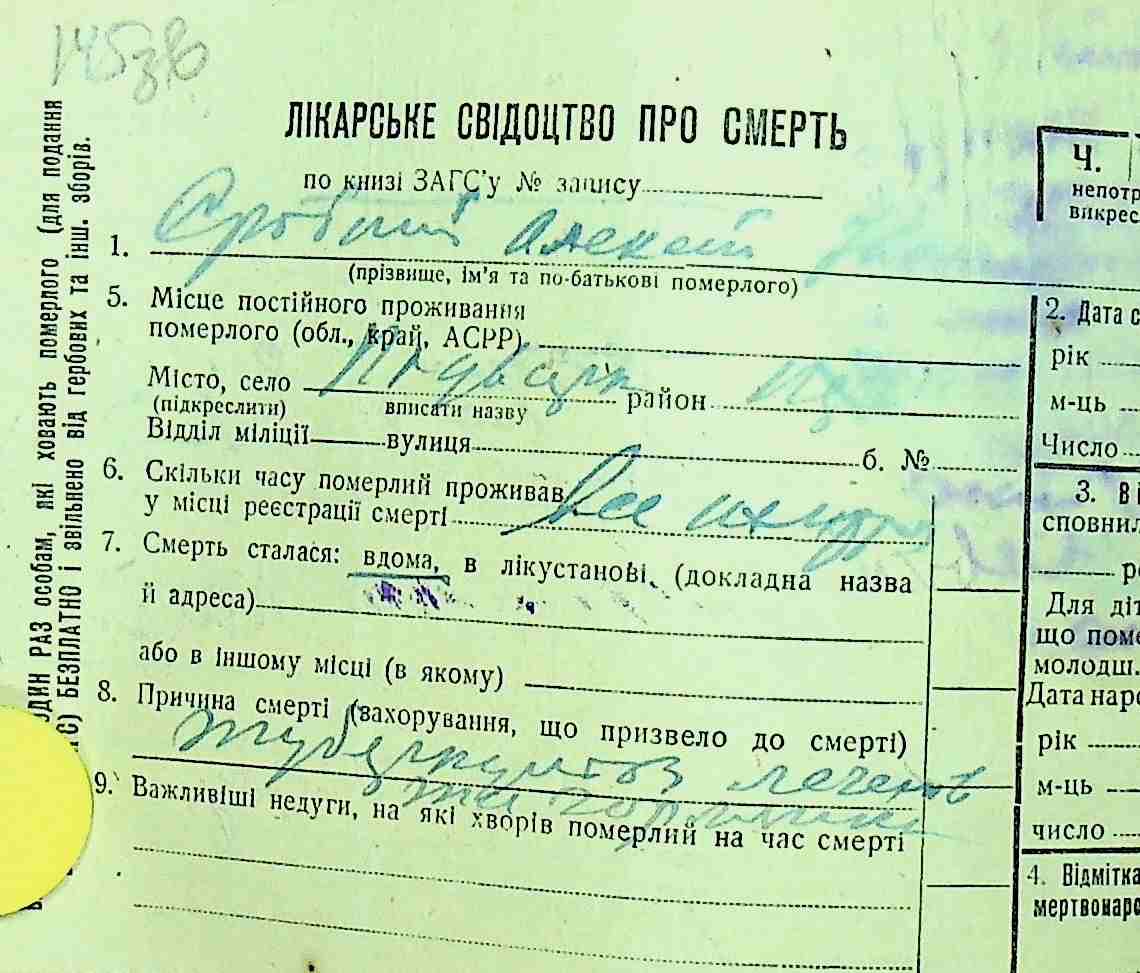 ЛІКАРСЬКЕ СВІДОЦТВО ПРО СМЕРТЬ
по книзі ЗАГС'у № запису
1. Алексей
(прізвище, ім'я та по-батькові померлого)
5. Місце постійного проживання
померлого (обл., край, АСРР)
Місто, село район
(підкреслити) вписати назву
Відділ міліції вулиця б. №
6. Скільки часу померлий проживав
у місці реєстрації смерті все
7. Смерть сталася: вдома, в лікустанові, (докладна назва
й адреса)
або в іншому місці (в якому)
8. Причина смерті (захорування, що призвело до смерті)
туберкулез легких
9. Важливіші недуги, на які хворів померлий на час смерті
Ч.
непотр
викрес
2. Дата с
рік
м-ць
Число
3. В і
сповнил
р
Для діт
що поме
молодш.
Дата наро
рік
м-ць
число
4. Відмітка
мертвонаро
ОДИН РАЗ особам, які ховають померлого (для подання
БЕЗПЛАТНО і звільнено від гербових та інш. зборів.